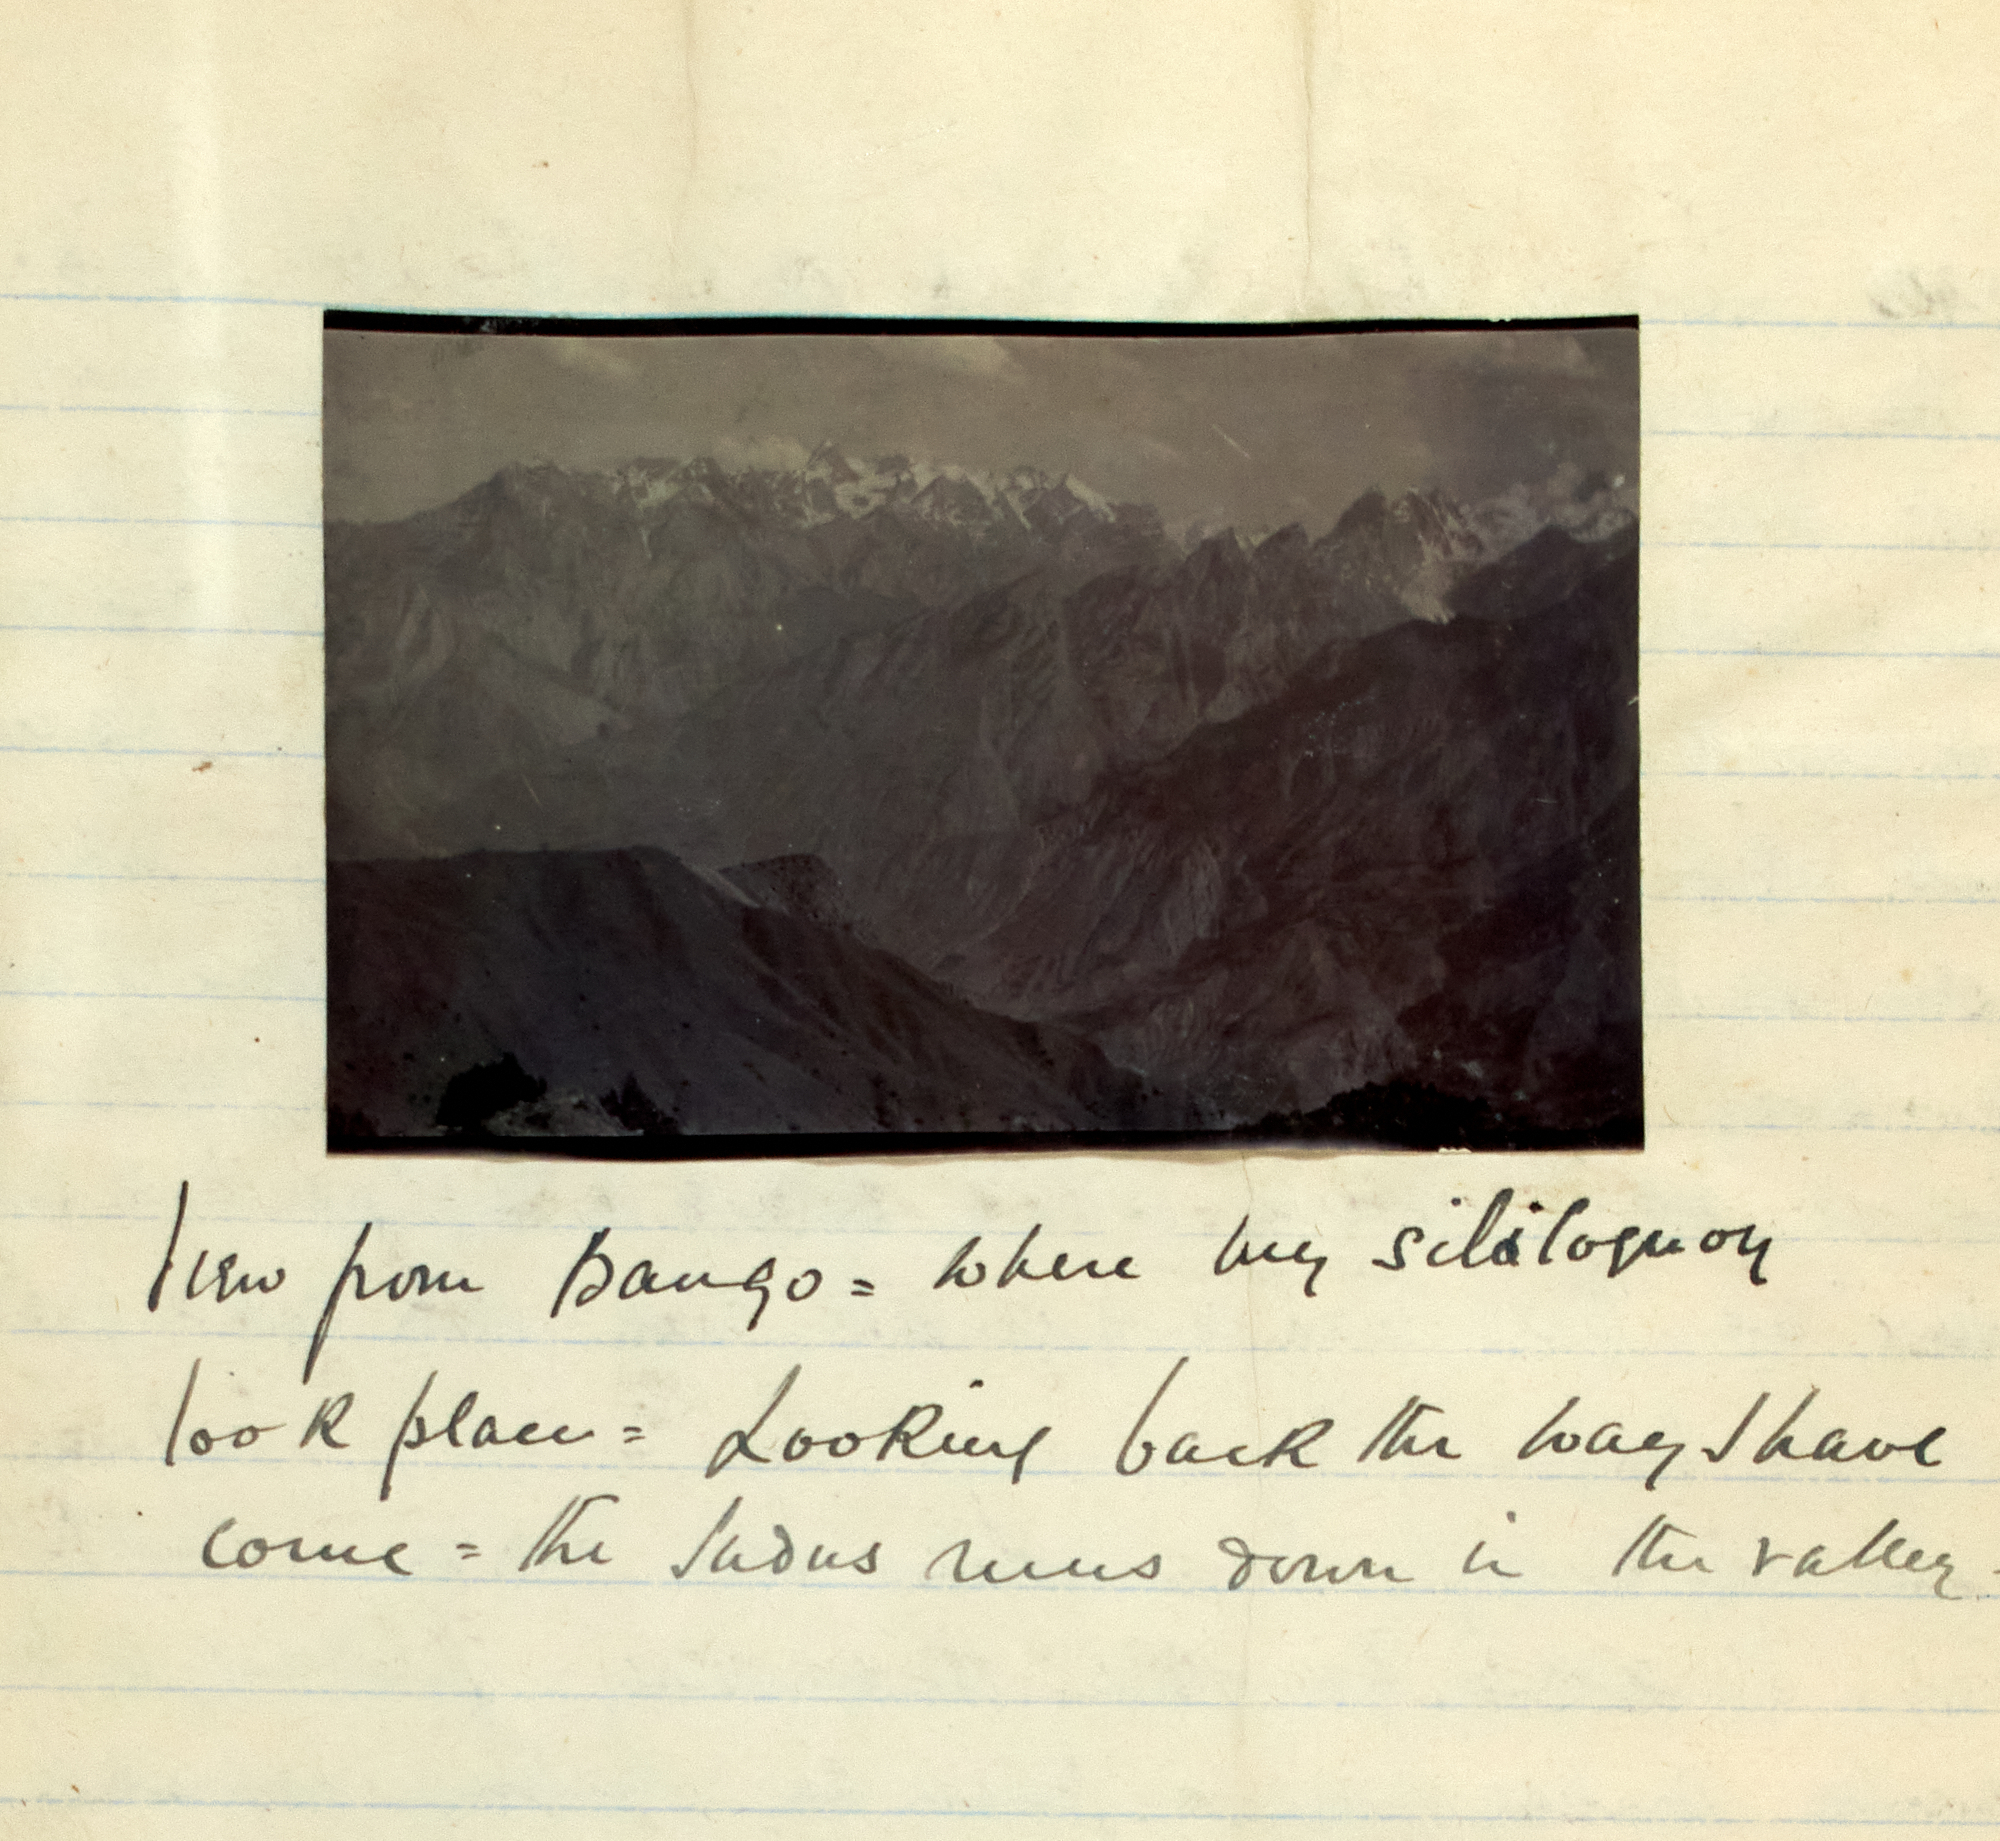 View from Bango = where my sililoquoy
took place = Looking back the way I have
come = the Indus runs down in the valley -